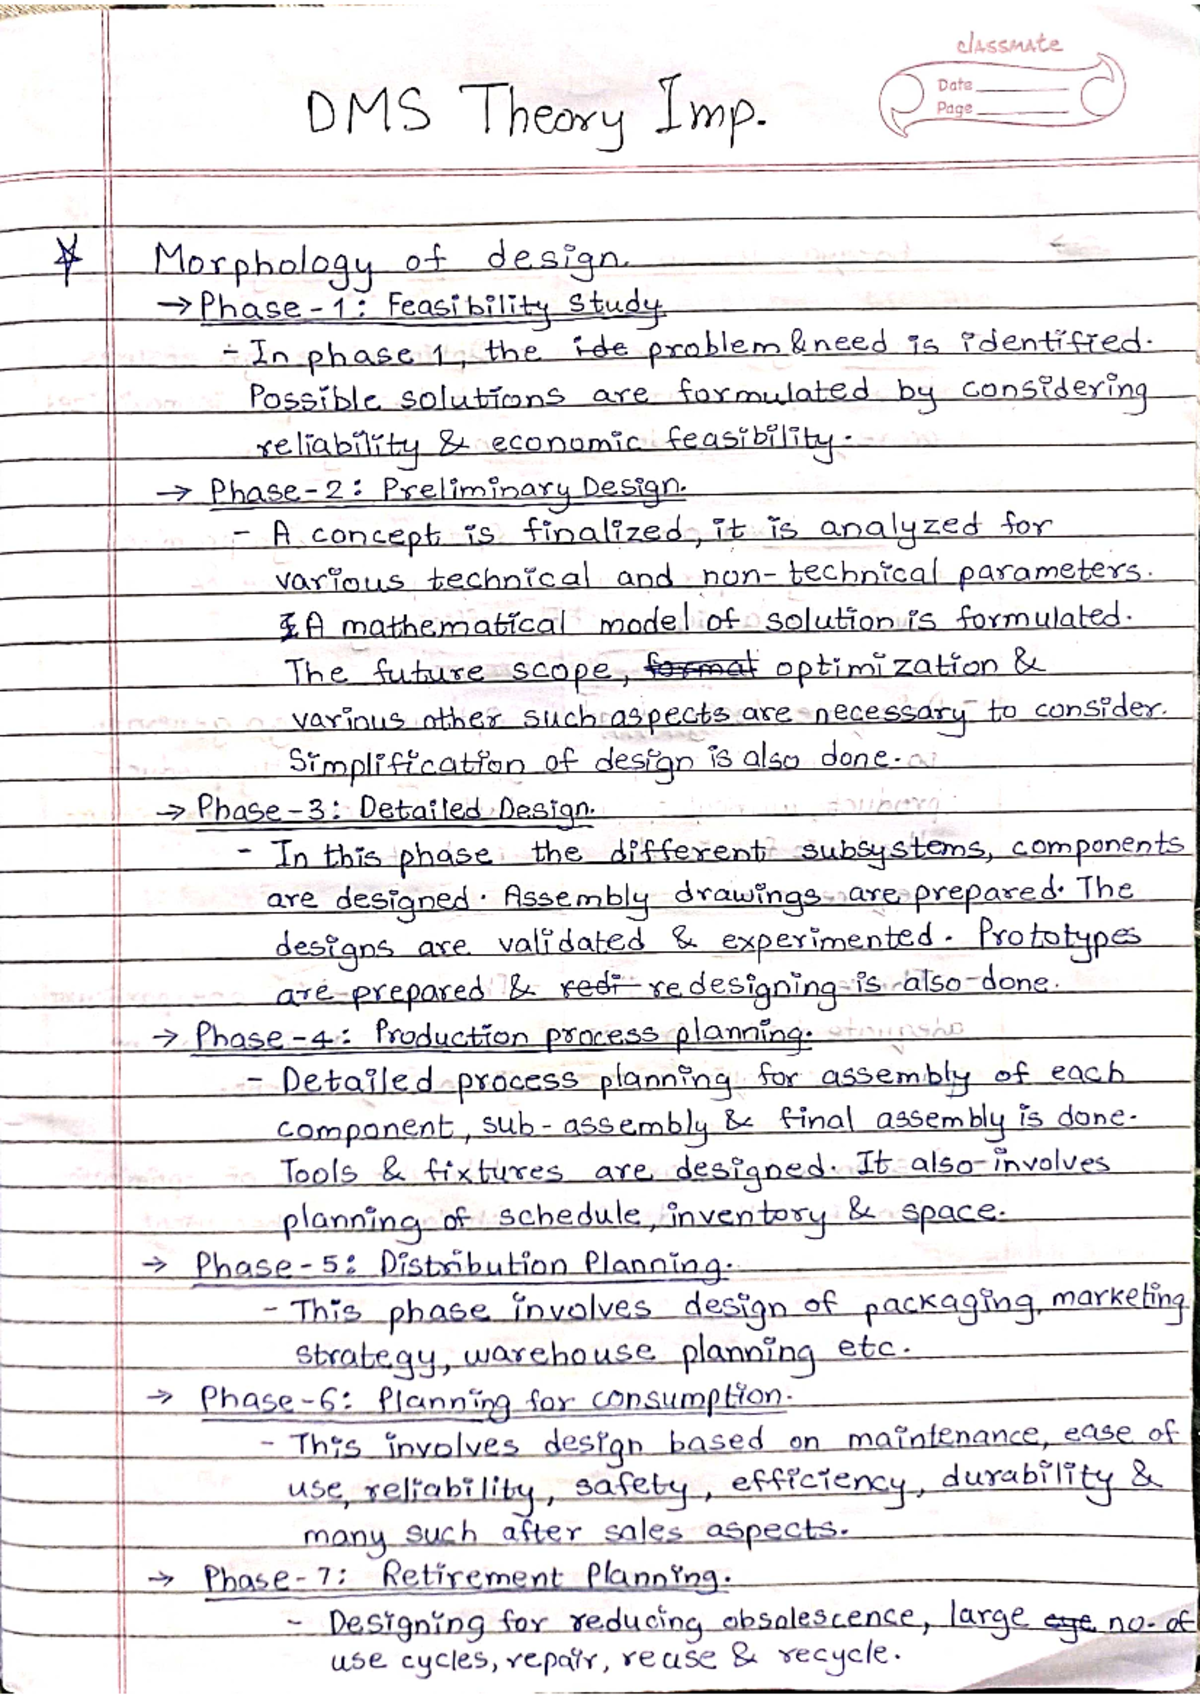 classmate
Date
Page
DMS Theory Imp.
Morphology of design.
→ Phase-1: Feasibility study
- In phase 1, the ide problem & need is identified.
Possible solutions are formulated by considering
reliability & economic feasibility.
→ Phase-2: Preliminary Design.
- A concept is finalized, it is analyzed for
various technical and non-technical parameters.
A mathematical model of solution is formulated.
The future scope, format optimization &
various other such aspects are necessary to consider.
Simplification of design is also done.
→ Phase-3: Detailed Design.
- In this phase the different subsystems, components
are designed. Assembly drawings are prepared. The
designs are validated & experimented. Prototypes
are prepared & redi redesigning is also done.
→ Phase-4: Production process planning.
- Detailed process planning for assembly of each
component, sub-assembly & final assembly is done.
Tools & fixtures are designed. It also involves
planning of schedule, inventory & space.
→ Phase-5: Distribution Planning.
- This phase involves design of packaging, marketing
strategy, warehouse planning etc.
→ Phase-6: Planning for consumption.
- This involves design based on maintenance, ease of
use, reliability, safety, efficiency, durability &
many such after sales aspects.
→ Phase-7: Retirement Planning.
- Designing for reducing obsolescence, large cyc no. of
use cycles, repair, reuse & recycle.